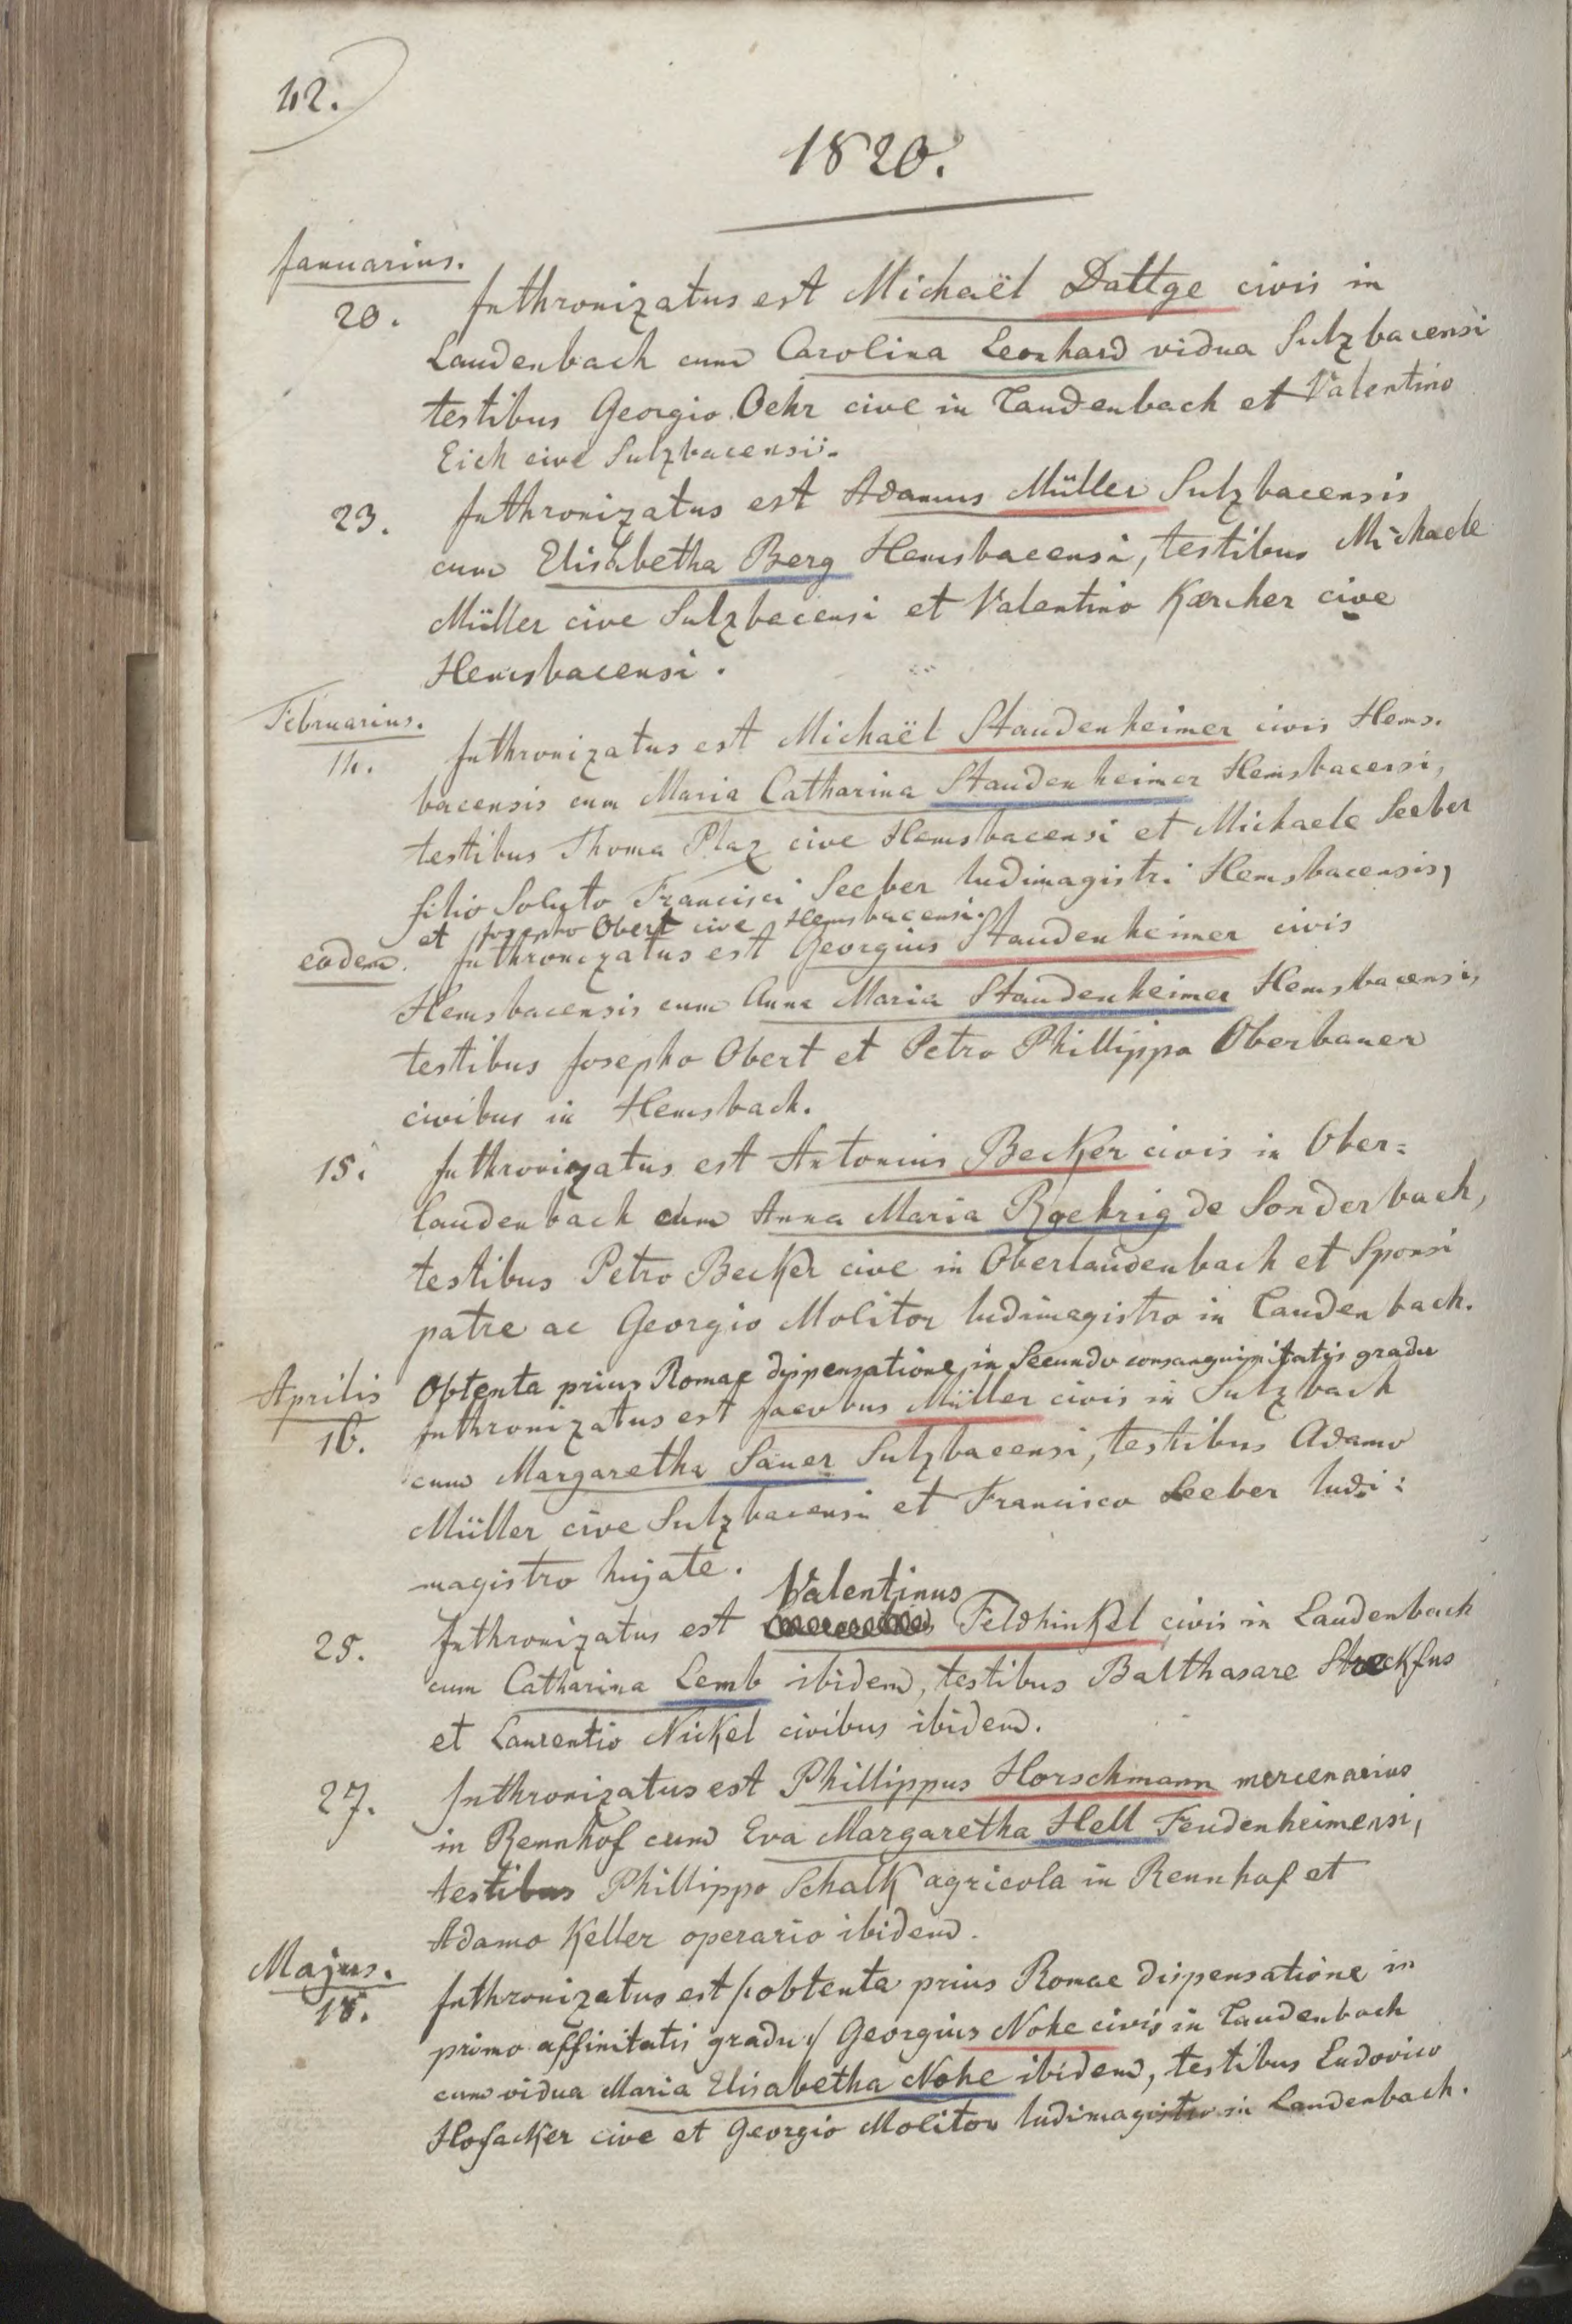 42.
1820.
Januarius.
20. Inthronizatus est Michaël Dattge civis in
Laudenbach cum Carolina Leonhard vidua Sulzbacensi
testibus Georgio Oehr cive in Laudenbach et Valentino
Eich cive Sulzbacensi.
23. Inthronizatus est Adamus Müller Sulzbacensis
cum Elisabetha Berg Hemsbacensi, testibus Michaele
Müller cive Sulzbacensi et Valentino Karcher cive
Hemsbacensi.
Februarius.
14. Inthronizatus est Michaël Staudenheimer civis Hems-
bacensis cum Maria Catharina Staudenheimer Hemsbacensi,
testibus Thoma Plaz cive Hemsbacensi et Michaele Seeber
filio Soluto Francisci Seeber ludimagistri Hemsbacensis,
et Josepho Obert cive Hemsbacensi.
eodem. Inthronizatus est Georgius Staudenheimer civis
Hemsbacensis cum Anna Maria Staudenheimer Hemsbacensi,
testibus Josepho Obert et Petro Phillippo Oberbauer
civibus in Hemsbach.
15. Inthronizatus est Antonius Becker civis in Ober=
laudenbach cum Anna Maria Roehrig de Sonderbach,
testibus Petro Becker cive in Oberlaudenbach et Sponsi
patre ac Georgio Molitor ludimagistro in Laudenbach.
Aprilis Obtenta prius Romae dispensatione in Secundo consanguinitatis gradu
16. Inthronizatus est Jacobus Müller civis in Sulzbach
cum Margaretha Sauer Sulzbacensi, testibus Adamo
Müller cive Sulzbacensi et Francisco Seeber ludi:
magistro hujate.
Valentinus
25. Inthronizatus est Feldhinkel civis in Laudenbach
cum Catharina Lemb ibidem, testibus Balthasare Streckfus
et Laurentio Nickel civibus ibidem.
27. Inthronizatus est Phillippus Horschmann mercenarius
in Rennhof cum Eva Margaretha Hell Feudenheimensi,
testibus Phillippo Schalk agricola in Rennhof et
Adamo Keller operario ibidem.
Majus.
18. Inthronizatus est /: obtenta prius Romae dispensatione in
primo affinitatis gradu :/ Georgius Nohe civis in Laudenbach
cum vidua Maria Elisabetha Nohe ibidem, testibus Ludovico
Hofacker cive et Georgio Molitor ludimagistro in Laudenbach.